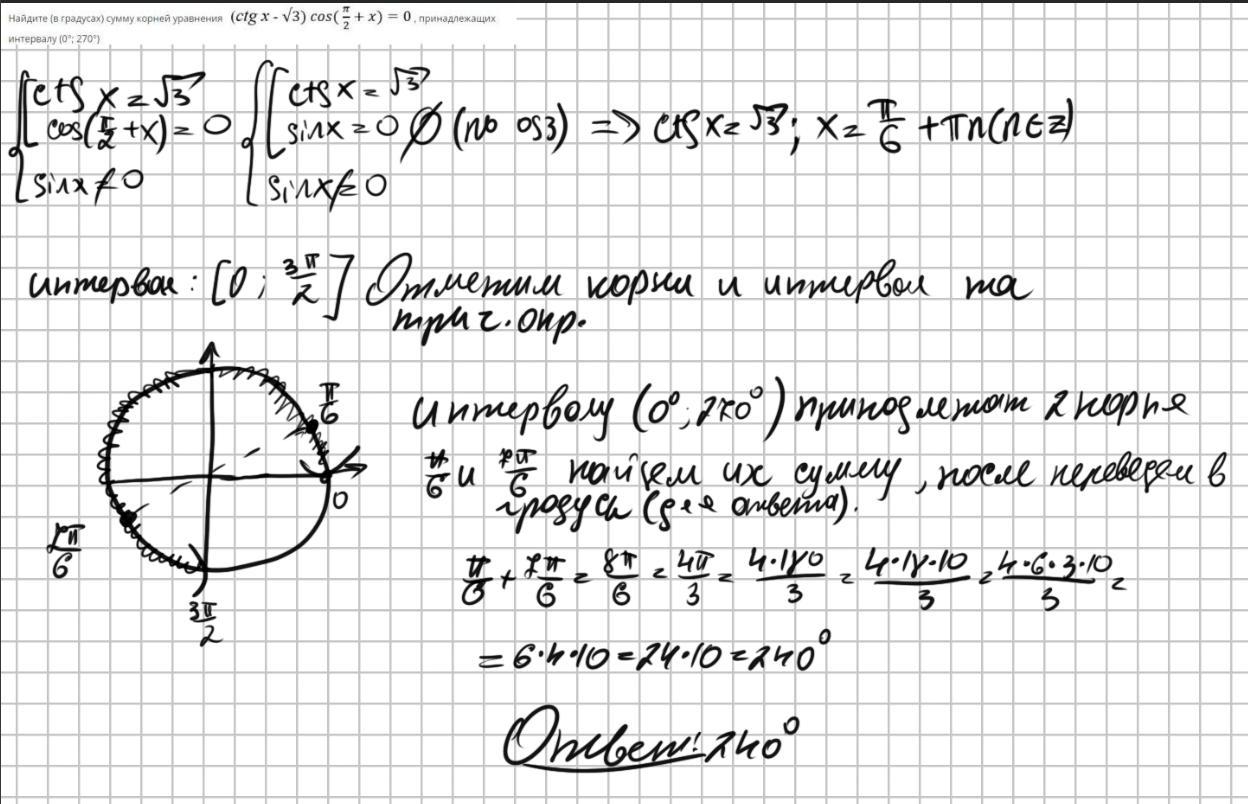 Найдите (в градусах) сумму корней уравнения (ctg x - √3) cos(π/2 + x) = 0 , принадлежащих
интервалу (0°; 270°)
ctg x = √3
cos(π/2 + x) = 0
sinx ≠ 0
ctg x = √3
sinx = 0 ∅ (по ОДЗ) => ctg x = √3; x = π/6 + πn(n∈Z)
sinx ≠ 0
интервал: [0; 3π/2] Отметим корни и интервал на
триг. окр.
π/6
0
7π/6
3π/2
Интервалу (0°; 270°) принадлежат 2 корня
π/6 и 7π/6 найдем их сумму, после переведем в
градусы (для ответа).
π/6 + 7π/6 = 8π/6 = 4π/3 = 4·180/3 = 4·18·10/3 = 4·6·3·10/3 =
= 6·4·10 = 24·10 = 240°
Ответ: 240°